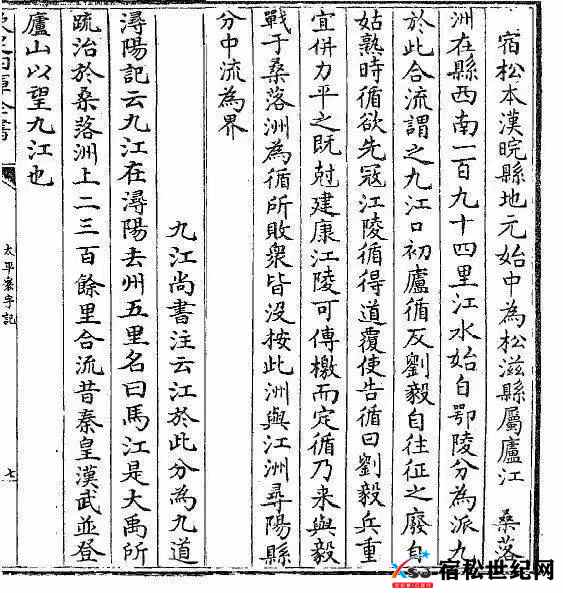 宿松本漢晥縣地元始中為松滋縣屬廬江　桑落
洲在縣西南一百九十四里江水始自鄂陵分為派九
於此合流謂之九江口初廬循反劉毅自往征之廢自
姑熟時循欲先冦江陵循得道覆使告循曰劉毅兵重
宜併力平之既尅建康江陵可傳檄而定循乃来與毅
戰于桑落洲為循所敗衆皆没按此洲與江洲尋陽縣
分中流為界
九江尚書注云江於此分為九道
潯陽記云九江在潯陽去州五里名曰馬江是大禹所
疏治於桑落洲上二三百餘里合流昔秦皇漢武並登
廬山以望九江也
太平寰宇記
七
宿松世纪网